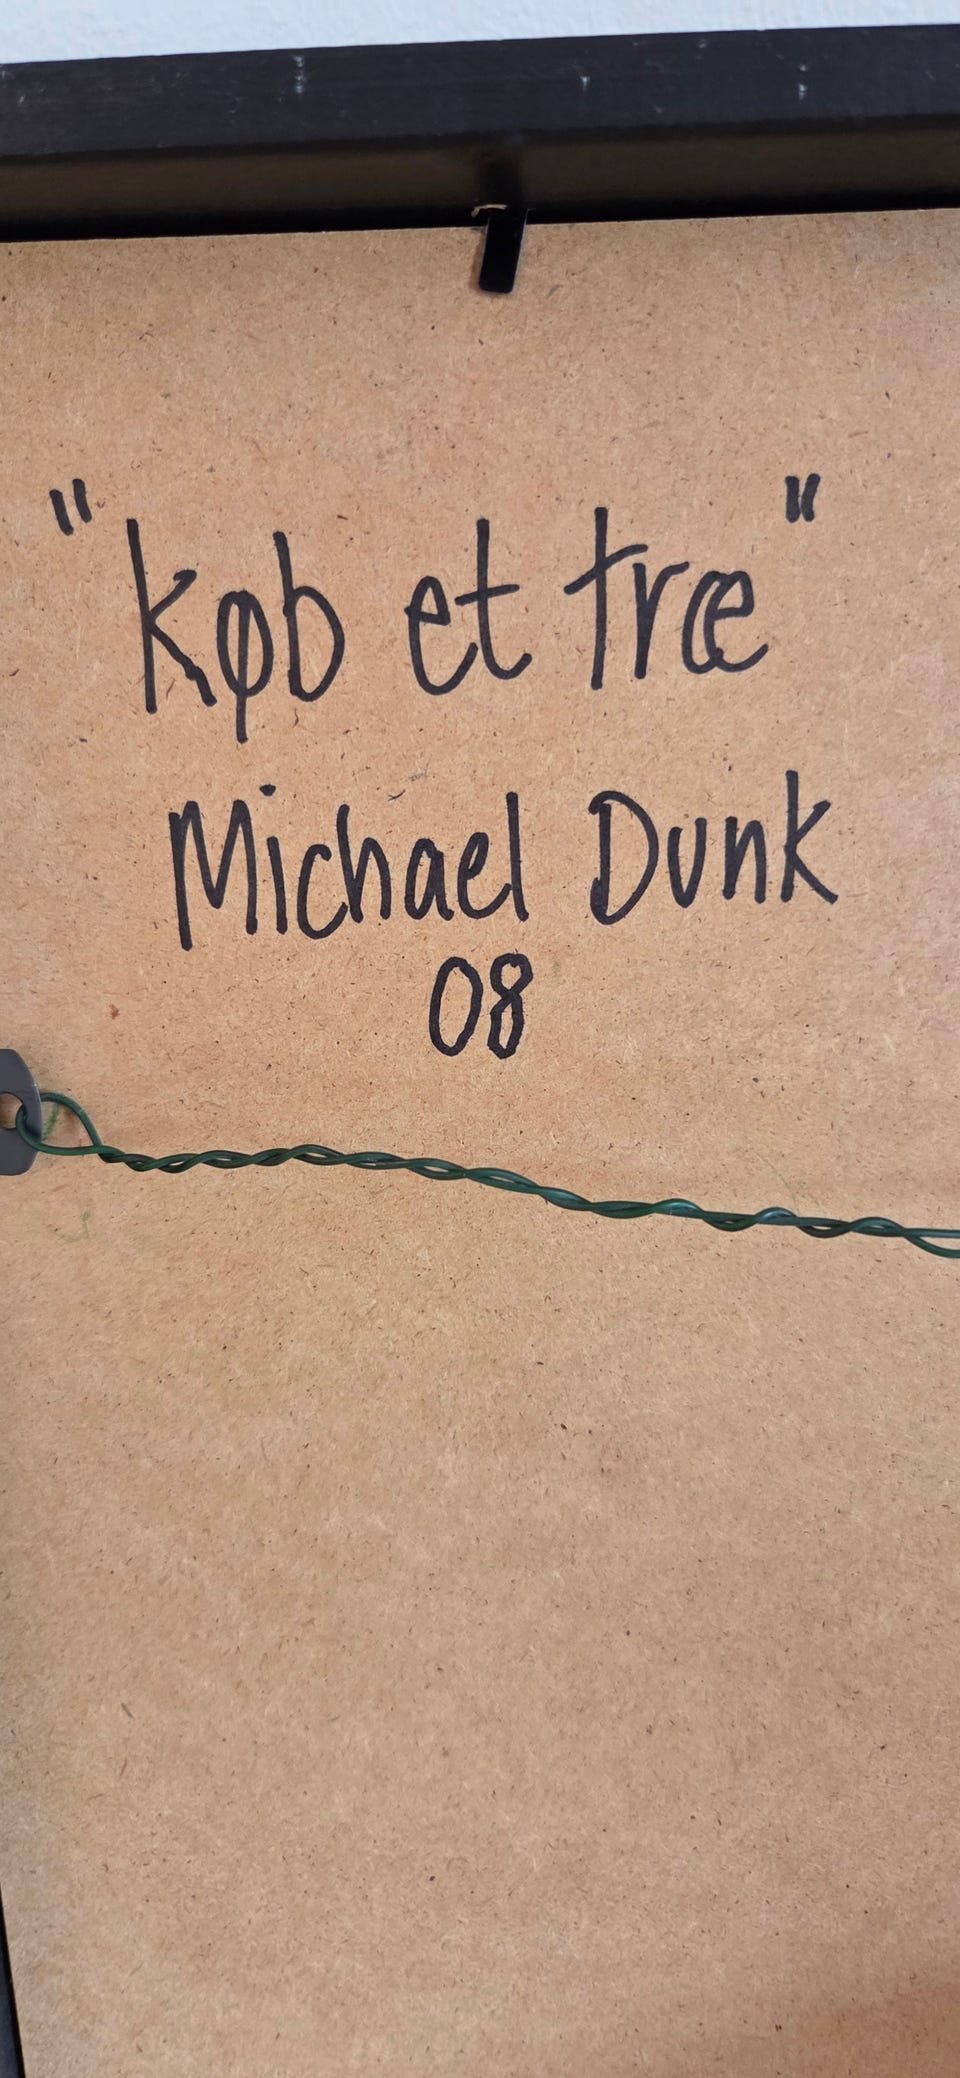 "Køb et træ"
Michael Dunk
08